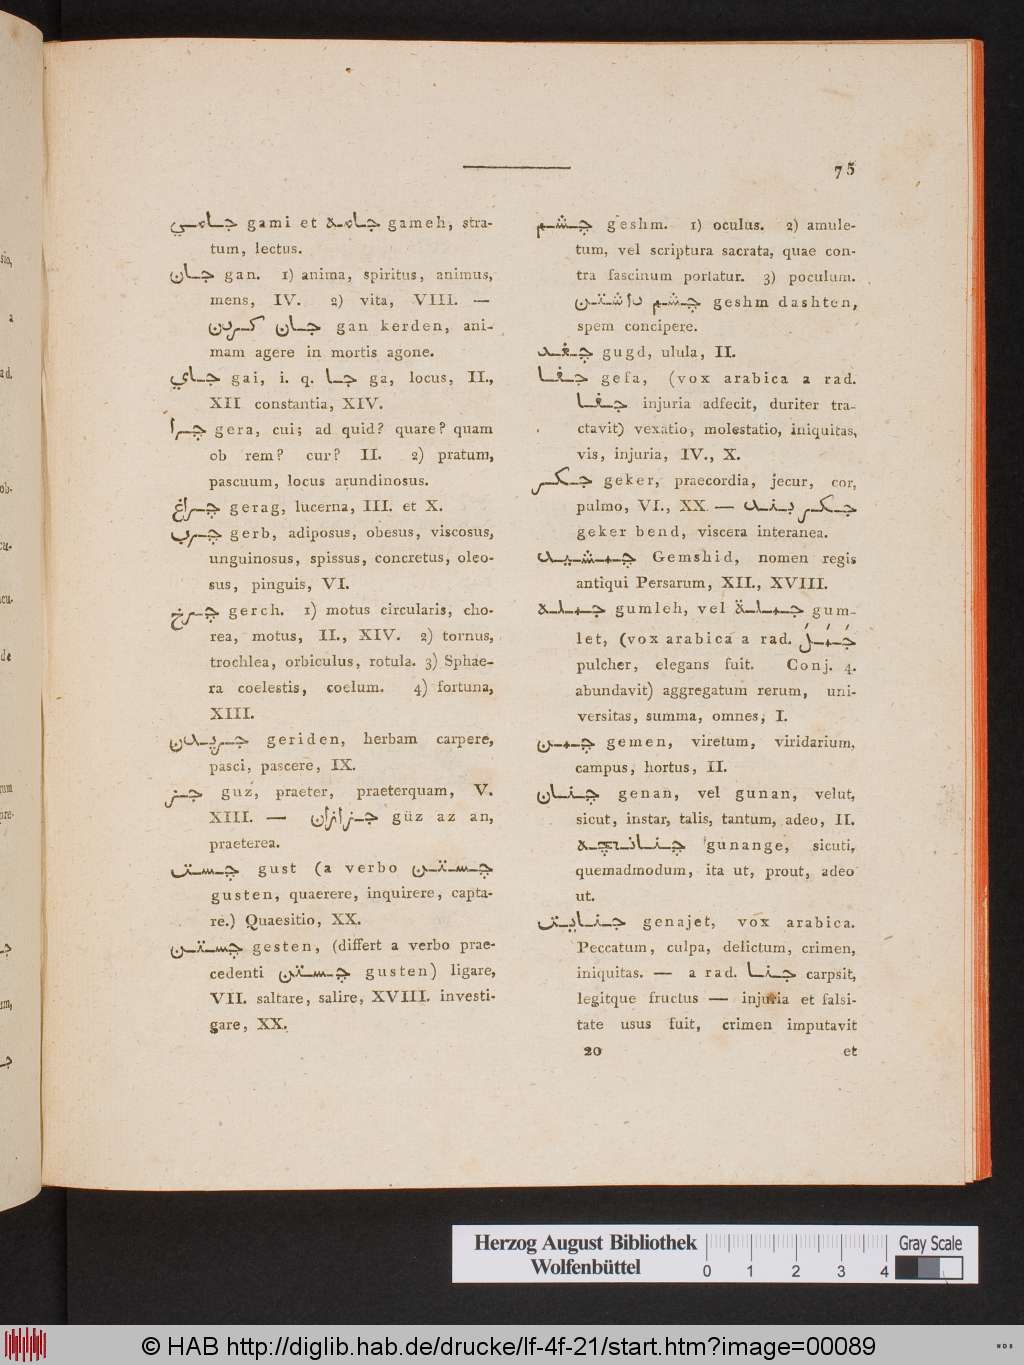 75
جامي gami et جامه gameh, stra-
tum, lectus.
جان gan. 1) anima, spiritus, animus,
mens, IV. 2) vita, VIII. —
جان كردن gan kerden, ani-
mam agere in mortis agone.
جاي gai, i. q. جا ga, locus, II.,
XII constantia, XIV.
چرا gera, cui; ad quid? quare? quam
ob rem? cur? II. 2) pratum,
pascuum, locus arundinosus.
چراغ gerag, lucerna, III. et X.
چرب gerb, adiposus, obesus, viscosus,
unguinosus, spissus, concretus, oleo-
sus, pinguis, VI.
چرخ gerch. 1) motus circularis, cho-
rea, motus, II., XIV. 2) tornus,
trochlea, orbiculus, rotula. 3) Sphae-
ra coelestis, coelum. 4) fortuna,
XIII.
جريدن geriden, herbam carpere,
pasci, pascere, IX.
جز guz, praeter, praeterquam, V.
XIII. — جزازان güz az an,
praeterea.
جست gust (a verbo جستن
gusten, quaerere, inquirere, capta-
re.) Quaesitio, XX.
جستن gesten, (differt a verbo prae-
cedenti جستن gusten) ligare,
VII. saltare, salire, XVIII. investi-
gare, XX.
چشم geshm. 1) oculus. 2) amule-
tum, vel scriptura sacrata, quae con-
tra fascinum portatur. 3) poculum.
چشم داشتن geshm dashten,
spem concipere.
چغد gugd, ulula, II.
جفا gefa, (vox arabica a rad.
جفا injuria adfecit, duriter tra-
ctavit) vexatio, molestatio, iniquitas,
vis, injuria, IV., X.
جكر geker, praecordia, jecur, cor,
pulmo, VI., XX. — جكر بند
geker bend, viscera interanea.
جمشيد Gemshid, nomen regis
antiqui Persarum, XII., XVIII.
جمله gumleh, vel جملة gum-
let, (vox arabica a rad. جَمَلَ
pulcher, elegans fuit. Conj. 4.
abundavit) aggregatum rerum, uni-
versitas, summa, omnes, I.
چمن gemen, viretum, viridarium,
campus, hortus, II.
چنان genan, vel gunan, velut,
sicut, instar, talis, tantum, adeo, II.
چنانچه gunange, sicuti,
quemadmodum, ita ut, prout, adeo
ut.
جنايت genajet, vox arabica.
Peccatum, culpa, delictum, crimen,
iniquitas. — a rad. جنا carpsit,
legitque fructus — injuria et falsi-
tate usus fuit, crimen imputavit
20 et
Herzog August Bibliothek
Wolfenbüttel
0 1 2 3 4
Gray Scale
© HAB http://diglib.hab.de/drucke/lf-4f-21/start.htm?image=00089